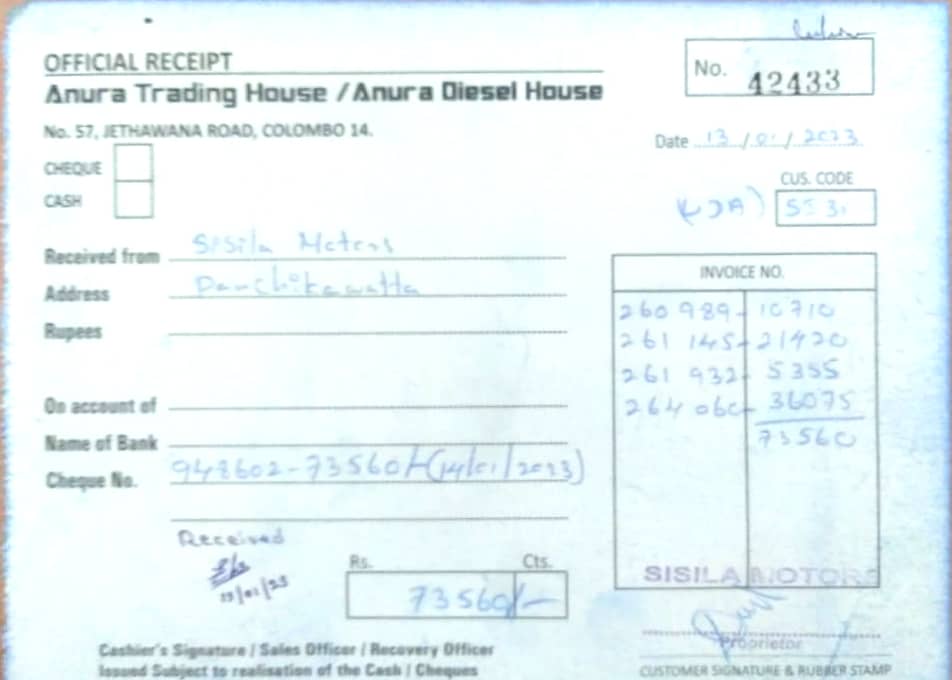 OFFICIAL RECEIPT
No. 42433
Anura Trading House / Anura Diesel House
No. 57, JETHAWANA ROAD, COLOMBO 14.
Date 13/01/2023
CHEQUE
CUS. CODE
CASH
Received from Sisila Motors
INVOICE NO.
Address Panchikawatta
260 989- 10710
Rupees
261 145- 21420
261 932- 5355
On account of
264 060- 36075
73560
Name of Bank
Cheque No. 948602-73560/-(14/01/2023)
Received
Rs. Cts.
73560/-
13/01/23
SISILA MOTORS
Proprietor
Cashier's Signature / Sales Officer / Recovery Officer
Issued Subject to realisation of the Cash / Cheques
CUSTOMER SIGNATURE & RUBBER STAMP